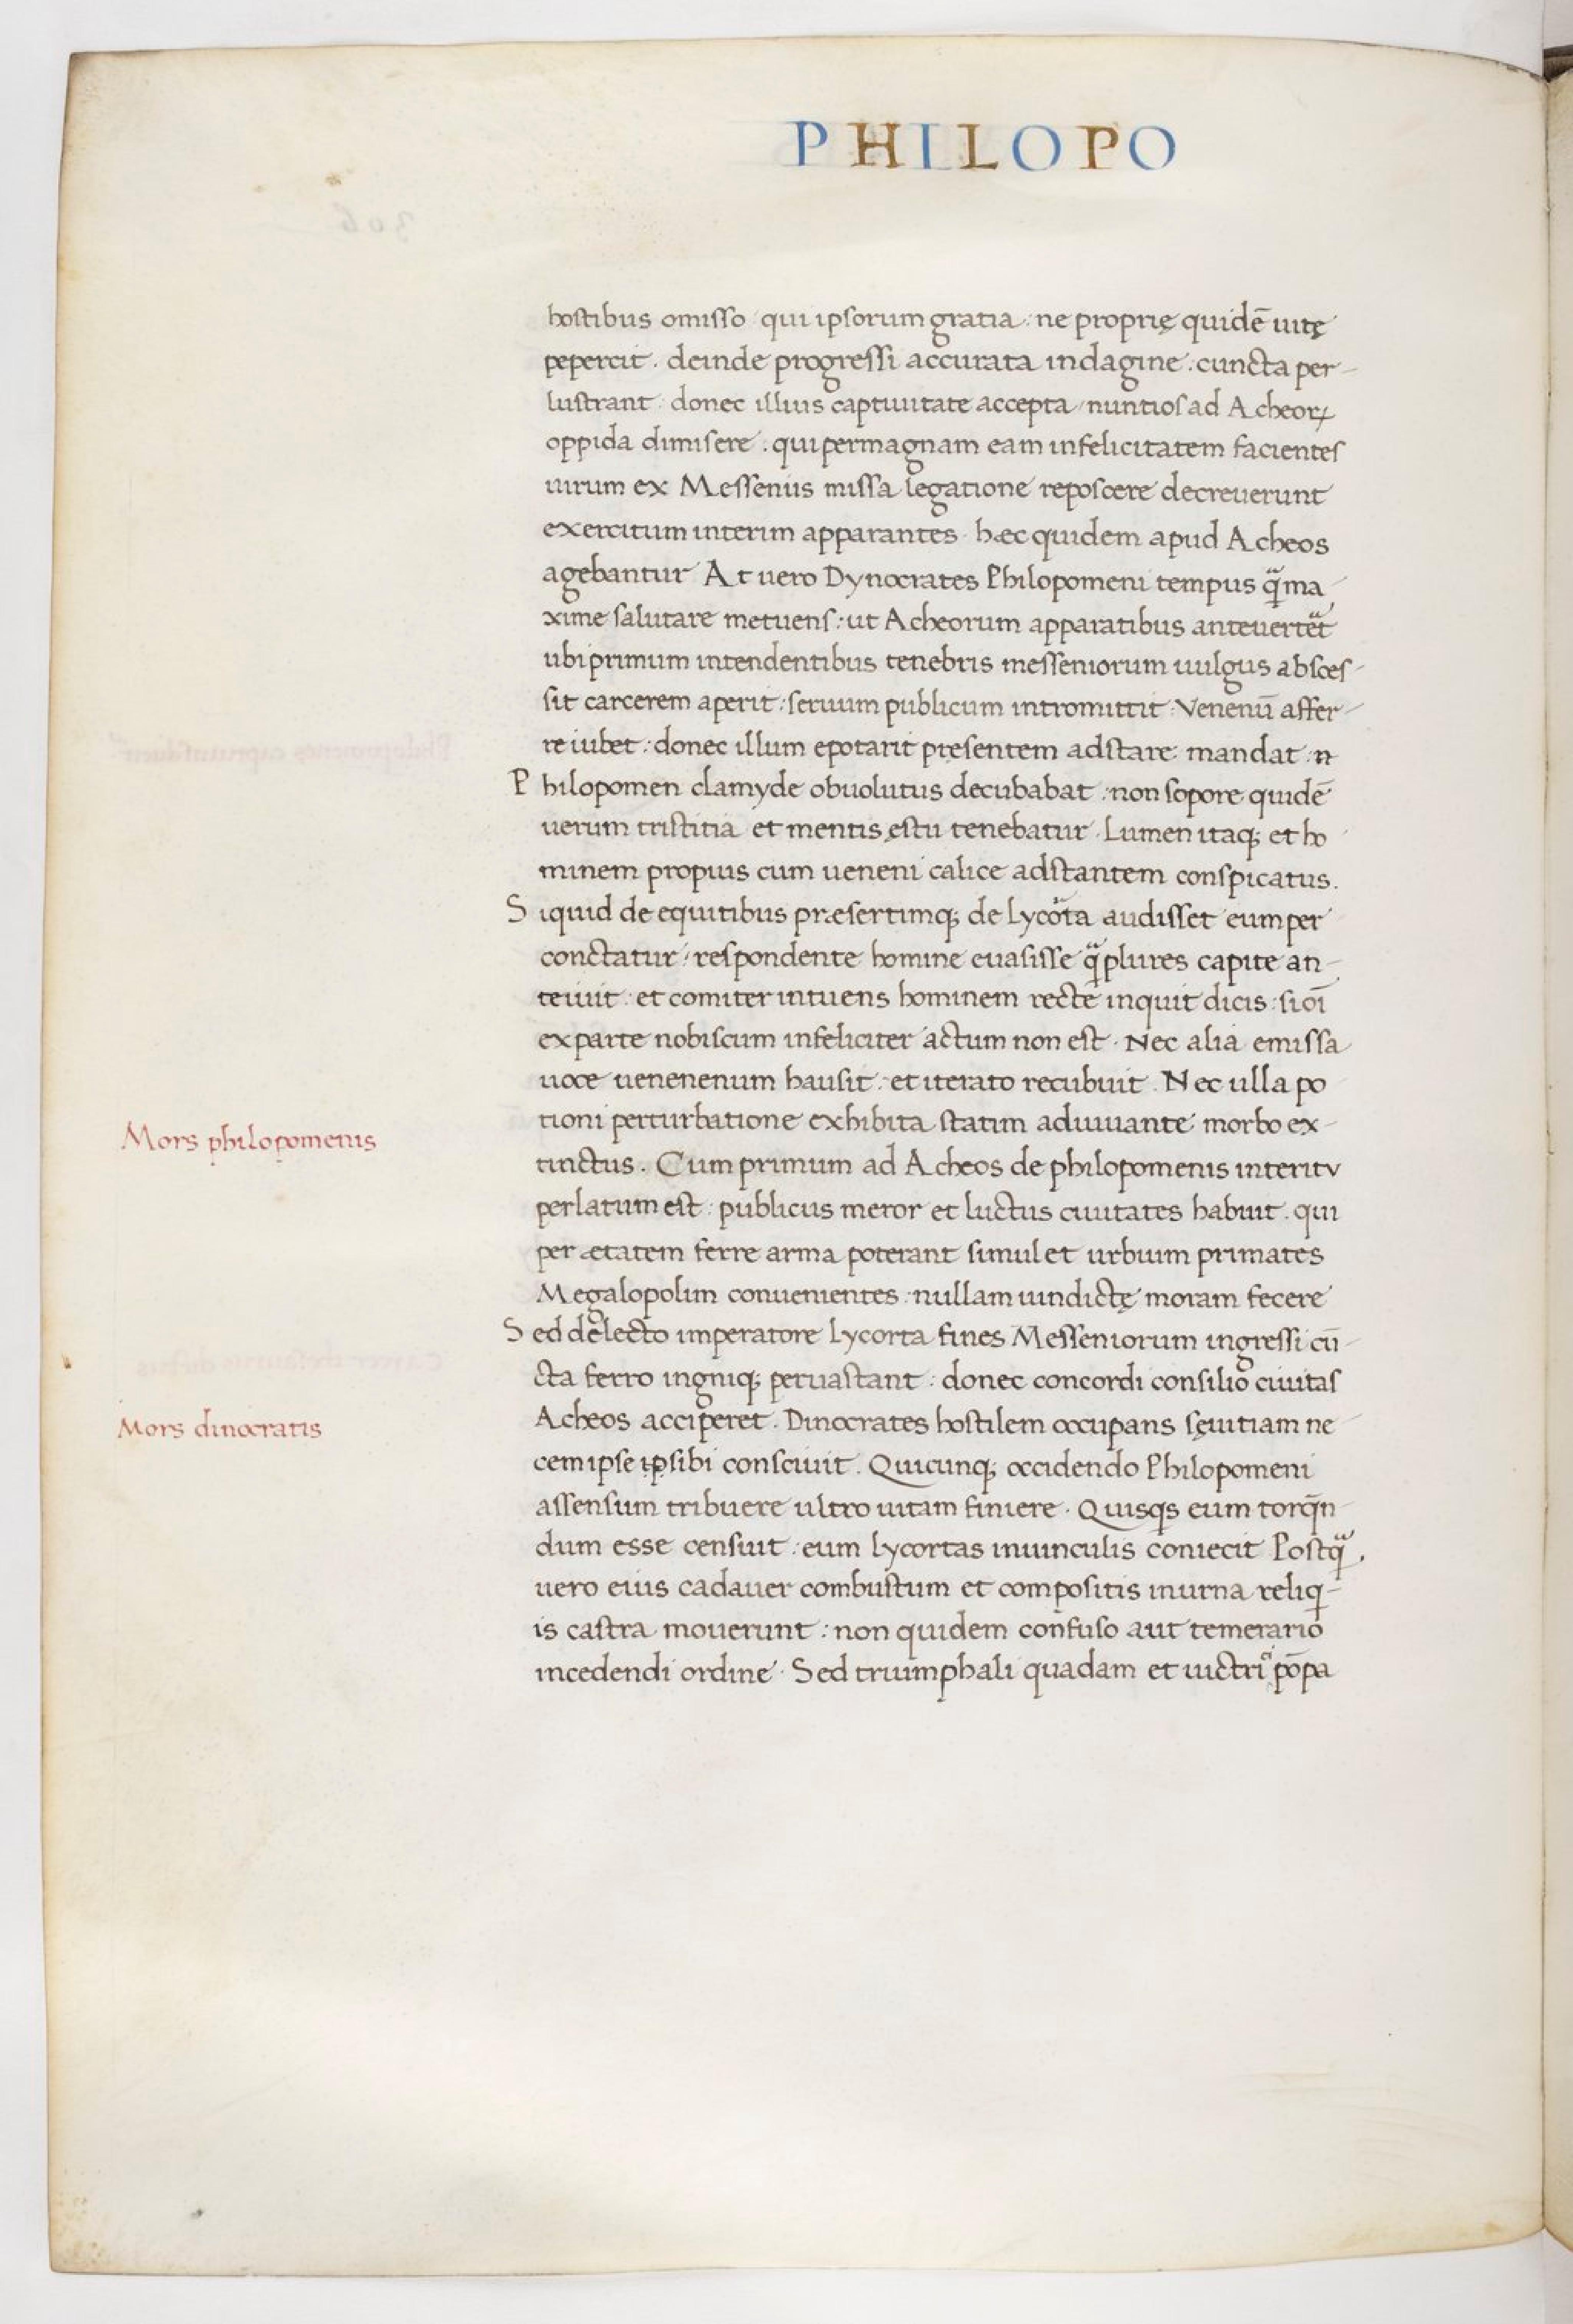 PHILOPO
hostibus omisso qui ipsorum gratia: ne proprię quidē uitę
pepercit. deinde progressi accurata indagine: cuncta per-
lustrant: donec illius captiuitate accepta nuntios ad Acheoꝝ
oppida dimisere. qui permagnam eam infelicitatem facientes
uirum ex Messeniis missa legatione reposcere decreuerunt
exercitum interim apparantes. hæc quidem apud Acheos
agebantur At uero Dynocrates Philopomeni tempus qᷓ ma-
xime salutare metuens: ut Acheorum apparatibus anteuerteᷓt
ubi primum intendentibus tenebris messeniorum uulgus absces-
sit carcerem aperit: seruum publicum intromittit: Venenū affer-
re iubet: donec illum epotarit presentem adstare mandat:
Philopomen clamyde obuolutus decubabat: non sopore quidē
uerum tristitia et mentis ęstu tenebatur. Lumen itaq; et ho-
minem propius cum ueneni calice adstantem conspicatus.
Siquid de equitibus præsertimq; de Lycorta audisset eum per-
conctatur: respondente homine euasisse qᷓ plures capite an-
teiuit: et comiter intuens hominem recte inquit dicis: si oī
ex parte nobiscum infeliciter actum non est. Nec alia emissa
uoce uenenenum hausit: et iterato recubuit. Nec ulla po-
tioni perturbatione exhibita statim adiuuante morbo ex-
Mors philopomenis
tinctus. Cum primum ad Acheos de philopomenis interitu
perlatum est: publicus meror et luctus ciuitates habuit. qui
per ætatem ferre arma poterant simul et urbium primates
Megalopolim conuenientes: nullam uindictę moram fecere
Sed delecto imperatore Lycorta fines Messeniorum ingressi cū-
cta ferro ingniq; peruastant: donec concordi consilio ciuitas
Mors dinocratis
Acheos acciperet. Dinocrates hostilem occupans sęuitiam ne-
cem ipse sibi consciuit. Quicunq; occidendo Philopomeni
assensum tribuere ultro uitam finiere. Quisqs eum torqn-
dum esse censuit: eum Lycortas in uinculis coniecit Postqᷓ
uero eius cadauer combustum et compositis in urna reliq-
is castra mouerunt: non quidem confuso aut temerario
incedendi ordine. Sed triumphali quadam et uictri pōpa